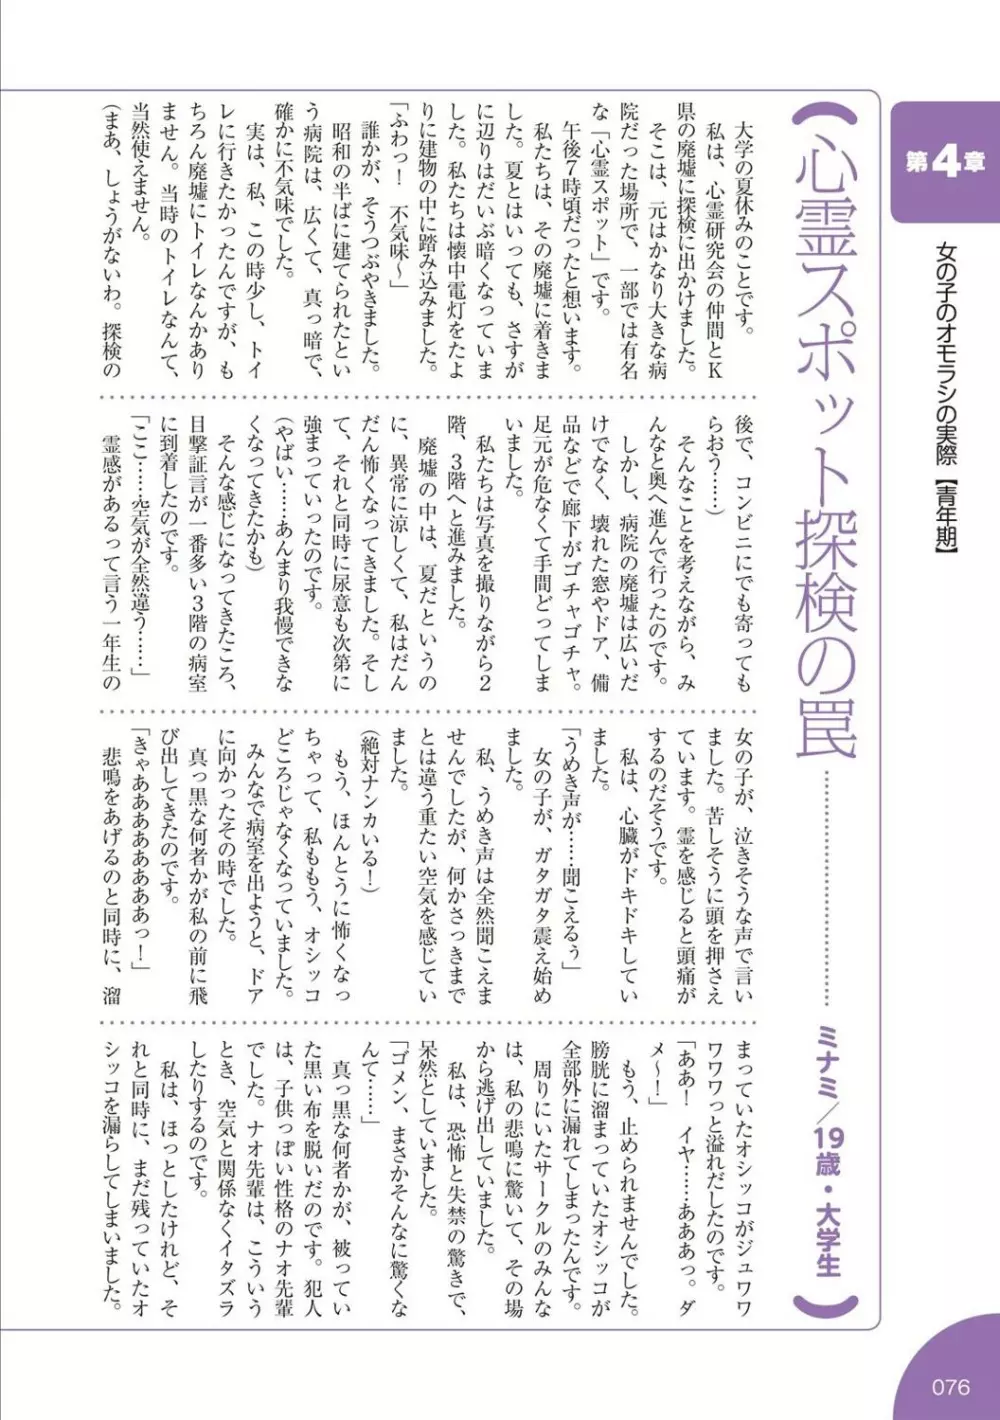 第4章
女の子のオモラシの実際【青年期】
心霊スポット探検の罠
ミナミ／19歳・大学生
大学の夏休みのことです。
私は、心霊研究会の仲間とK
県の廃墟に探検に出かけました。
そこは、元はかなり大きな病
院だった場所で、一部では有名
な「心霊スポット」です。
午後7時頃だったと想います。
私たちは、その廃墟に着きま
した。夏とはいっても、さすが
に辺りはだいぶ暗くなっていま
した。私たちは懐中電灯をたよ
りに建物の中に踏み込みました。
「ふわっ！　不気味～」
誰かが、そうつぶやきました。
昭和の半ばに建てられたとい
う病院は、広くて、真っ暗で、
確かに不気味でした。
実は、私、この時少し、トイ
レに行きたかったんですが、も
ちろん廃墟にトイレなんかあり
ません。当時のトイレなんて、
当然使えません。
(まあ、しょうがないわ。探検の
後で、コンビニにでも寄っても
らおう……)
そんなことを考えながら、み
んなと奥へ進んで行ったのです。
しかし、病院の廃墟は広いだ
けでなく、壊れた窓やドア、備
品などで廊下がゴチャゴチャ。
足元が危なくて手間どってしま
いました。
私たちは写真を撮りながら2
階、3階へと進みました。
廃墟の中は、夏だというの
に、異常に涼しくて、私はだん
だん怖くなってきました。そし
て、それと同時に尿意も次第に
強まっていったのです。
(やばい……あんまり我慢できな
くなってきたかも)
そんな感じになってきたころ、
目撃証言が一番多い3階の病室
に到着したのです。
「ここ……空気が全然違う……」
霊感があるって言う一年生の
女の子が、泣きそうな声で言い
ました。苦しそうに頭を押さえ
ています。霊を感じると頭痛が
するのだそうです。
私は、心臓がドキドキしてい
ました。
「うめき声が……聞こえるぅ」
女の子が、ガタガタ震え始め
ました。
私、うめき声は全然聞こえま
せんでしたが、何かさっきまで
とは違う重たい空気を感じてい
ました。
(絶対ナンカいる！)
もう、ほんとうに怖くなっ
ちゃって、私ももう、オシッコ
どころじゃなくなっていました。
みんなで病室を出ようと、ドア
に向かったその時でした。
真っ黒な何者かが私の前に飛
び出してきたのです。
「きゃああああああああっ！」
悲鳴をあげるのと同時に、溜
まっていたオシッコがジュワワ
ワワワっと溢れだしたのです。
「ああ！　イヤ……あああっ。ダ
メ～！」
もう、止められませんでした。
膀胱に溜まっていたオシッコが
全部外に漏れてしまったんです。
周りにいたサークルのみんな
は、私の悲鳴に驚いて、その場
から逃げ出していました。
私は、恐怖と失禁の驚きで、
呆然としていました。
「ゴメン、まさかそんなに驚くな
んて……」
真っ黒な何者かが、被ってい
た黒い布を脱いだのです。犯人
は、子供っぽい性格のナオ先輩
でした。ナオ先輩は、こういう
とき、空気と関係なくイタズラ
したりするのです。
私は、ほっとしたけれど、そ
れと同時に、まだ残っていたオ
シッコを漏らしてしまいました。
076